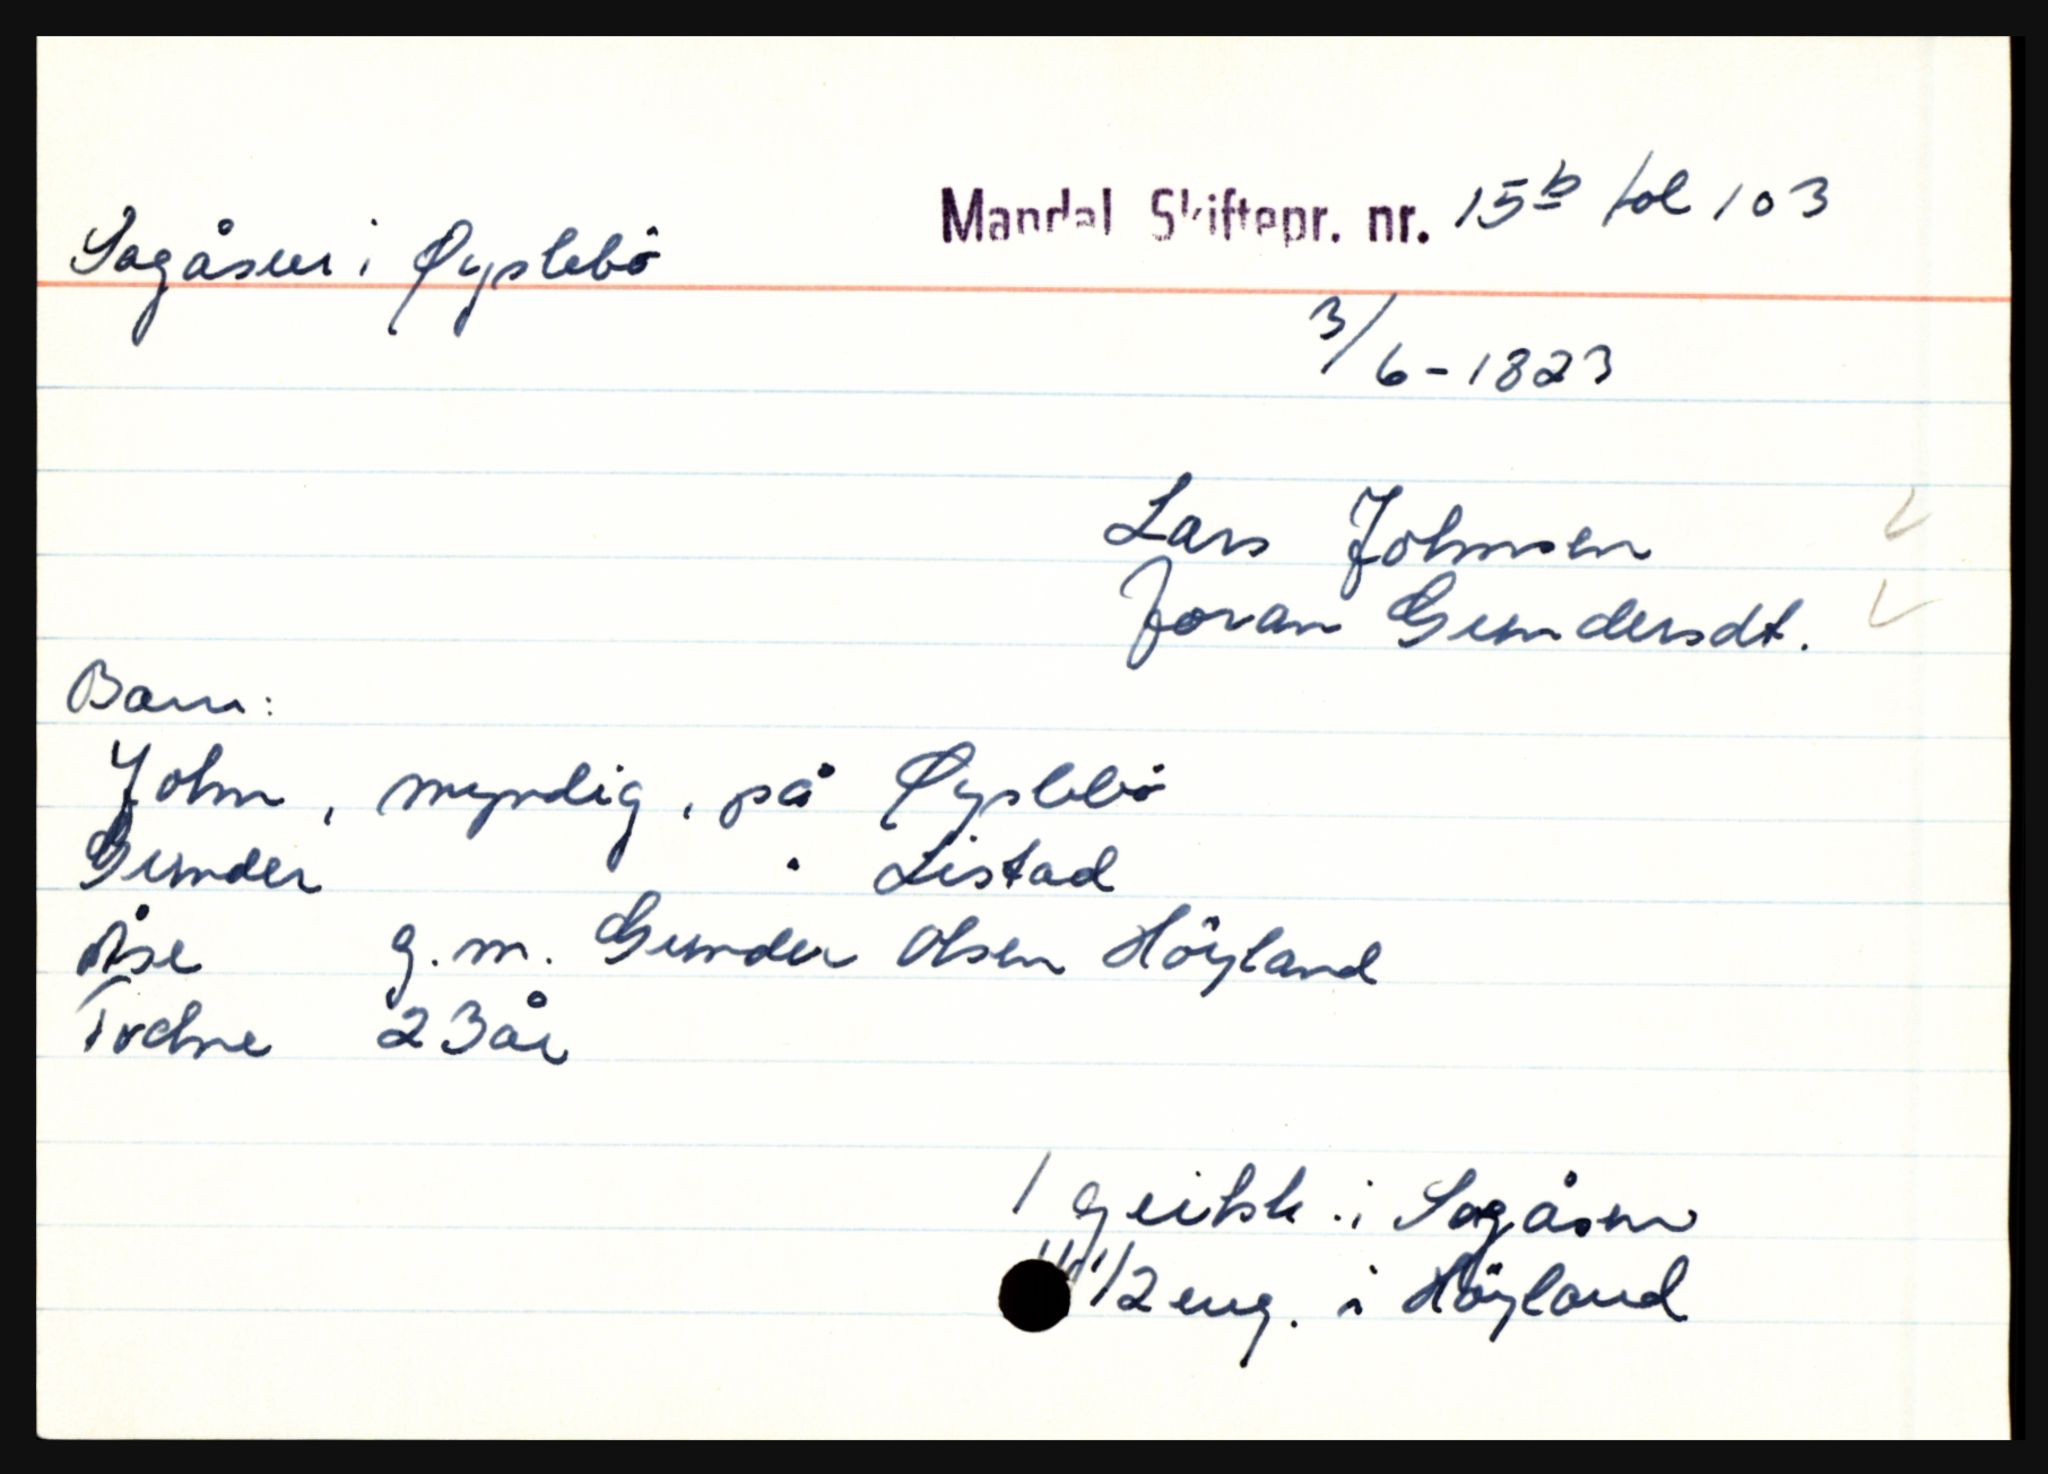 Mandal Skiftepr. nr. 15b fol 103
Sagåsen i Øyslebö
3/6-1823
Lars Johnsen
Joran Gundersdt.
Barn:
John, myndig, på Øyslebö
Gunder " Listad
Åse g.m. Gunder Olsen Höyland
Todne 23 år
1 geitsk. i Sagåsen
1/2 eng. i Höyland